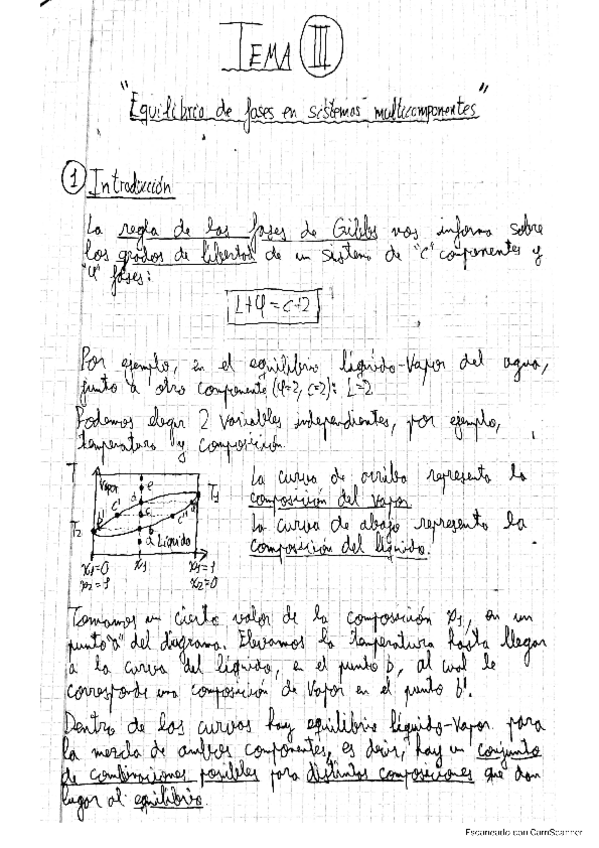 TEMA III
"Equilibrio de fases en sistemas multicomponentes"
① Introducción
La regla de las fases de Gibbs nos informa sobre
los grados de libertad de un sistema de "C" componentes y
"φ" fases:
L+φ=c+2
Por ejemplo, en el equilibrio líquido-Vapor del agua,
junto a otro componente (φ=2, c=2): L=2
Podemos elegir 2 variables independientes, por ejemplo,
temperatura y composición.
T
Vapor
e
d
c
b
a
b'
c'
c''
Líquido
T1
T2
x1=0
x2=1
x1
x1=1
x2=0
La curva de arriba representa la
composición del vapor
La curva de abajo representa la
composición del líquido.
Tomamos un cierto valor de la composición x1, en un
punto "a" del diagrama. Elevamos la temperatura hasta llegar
a la curva del líquido, en el punto b, al cual le
corresponde una composición de Vapor en el punto b'.
Dentro de las curvas hay equilibrio líquido-Vapor para
la mezcla de ambos componentes, es decir, hay un conjunto
de combinaciones posibles para distintas composiciones que dan
lugar al equilibrio.
Escaneado con CamScanner